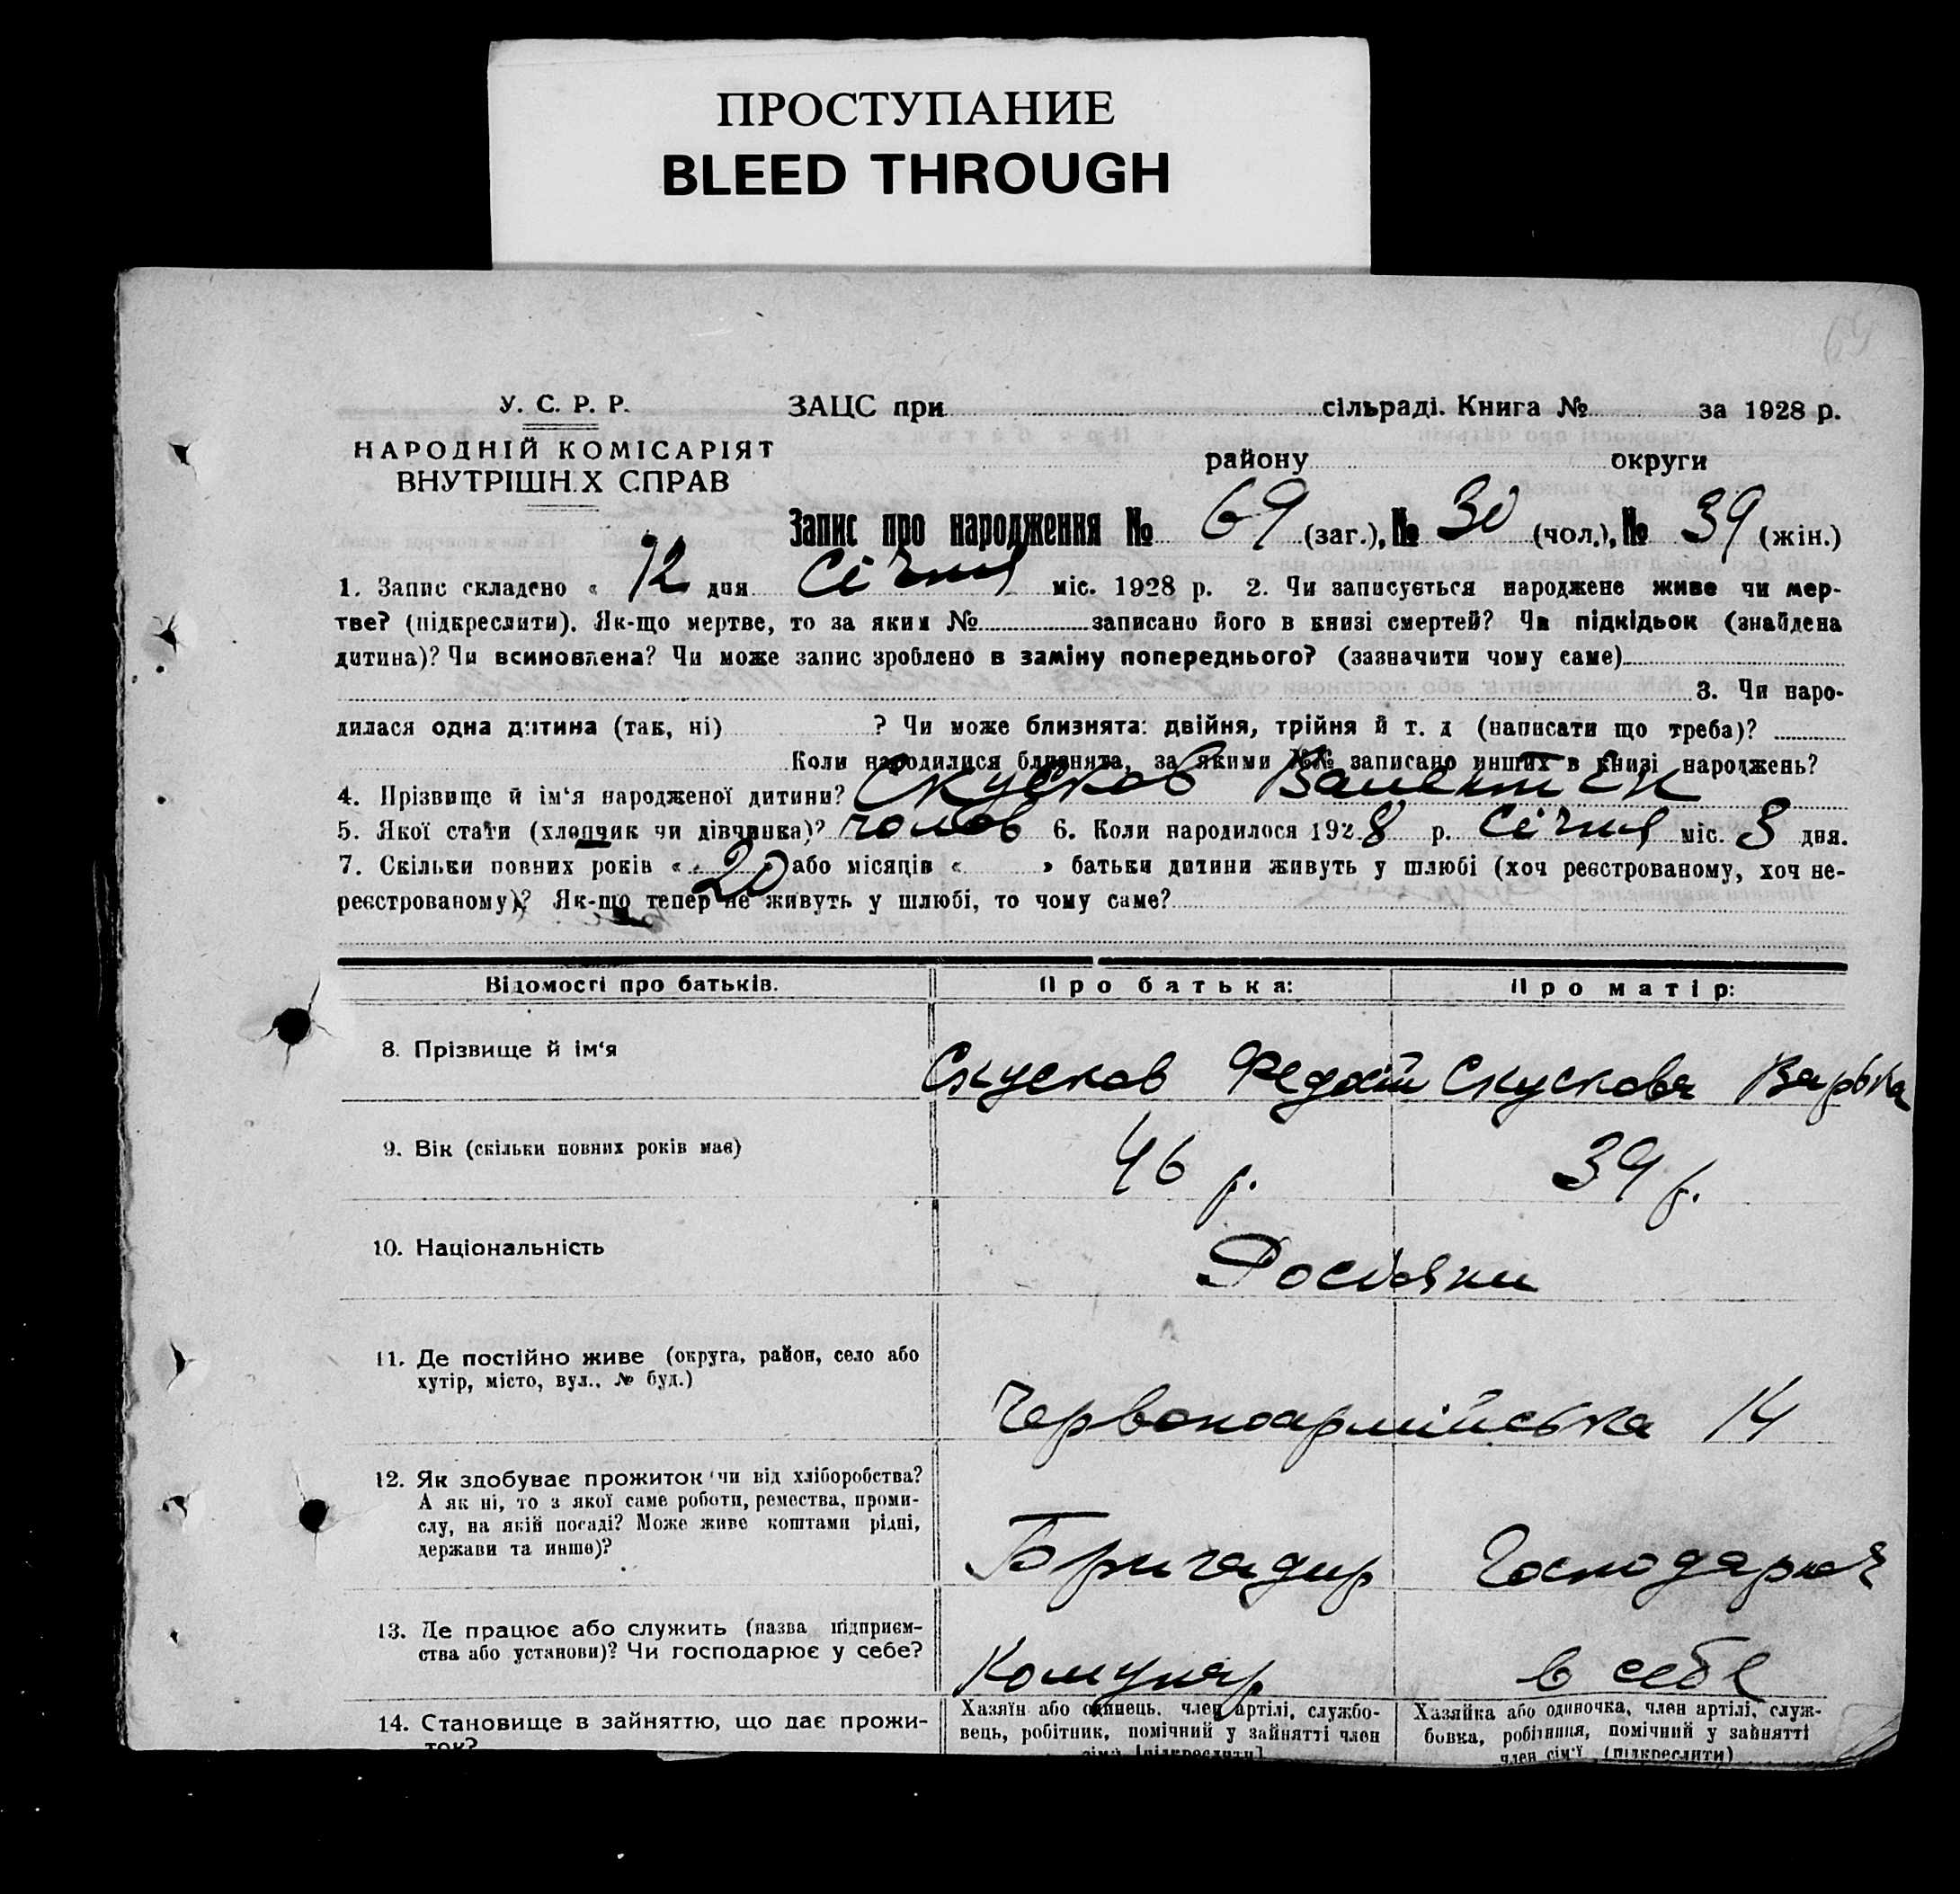 ПРОСТУПАНИЕ
BLEED THROUGH
69
У. С. Р. Р.
НАРОДНІЙ КОМІСАРІЯТ
ВНУТРІШН.Х СПРАВ
ЗАЦС при сільраді. Книга № за 1928 р.
району округи
Запис про народження № 69 (заг.), № 30 (чол.), № 39 (жін.)
1. Запис складено « 12 дня Січня міс. 1928 р. 2. Чи записується народжене живе чи мер-
тве? (підкреслити). Як-що мертве, то за яким № записано його в книзі смертей? Чи підкідьок (знайдена
дитина)? Чи всиновлена? Чи може запис зроблено в заміну попереднього? (зазначити чому саме)
3. Чи наро-
дилася одна дитина (так, ні) ? Чи може близнята: двійня, трійня й т. д (написати що треба)?
Коли народилися близнята, за якими №№ записано инших в книзі народжень?
4. Прізвище й ім‘я народженої дитини? Скусков Валентін
5. Якої стати (хлопчик чи дівчинка)? чолов 6. Коли народилося 1928 р. Січня міс. 8 дня.
7. Скільки повних років « 20 або місяців « » батьки дитини живуть у шлюбі (хоч реєстрованому, хоч не-
реєстрованому)? Як-що тепер не живуть у шлюбі, то чому саме?
Відомості про батьків. Про батька: Про матір:
8. Прізвище й ім‘я Скусков Федот Скускова Варька
9. Вік (скільки повних років має) 46 р. 39 р.
10. Національність Росіяни
11. Де постійно живе (округа, район, село або
хутір, місто, вул., № буд.)
Червоноармійська 14
12. Як здобуває прожиток чи від хліборобства?
А як ні, то з якої саме роботи, ремества, проми-
слу, на якій посаді? Може живе коштами рідні,
держави та инше)?
Бригадир Господарює
13. Де працює або служить (назва підприєм-
ства або установи)? Чи господарює у себе?
Комунар в себе
14. Становище в зайняттю, що дає прожи-
ток?
Хазяїн або одинець, член артілі, службо-
вець, робітник, помічний у зайнятті член
сім'ї [підкреслити]
Хазяйка або одиночка, член артілі, служ-
бовка, робітниця, помічний у зайнятті
член сім'ї (підкреслити)